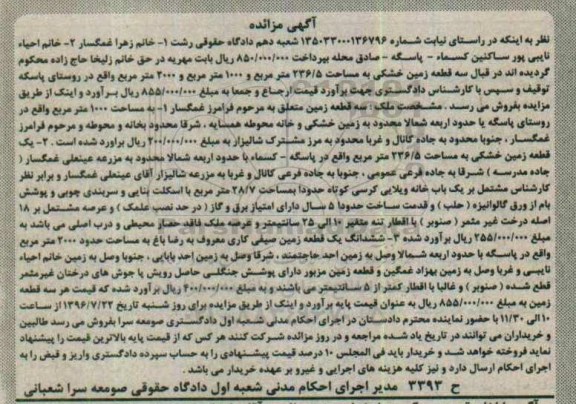 آگهی مزائده
نظر به اینکه در راستای نیابت شماره ۱۳۵۰۳۳۰۰۰۱۳۶۷۹۶ شعبه دهم دادگاه حقوقی رشت ۱- خانم زهرا غمگسار ۲- خانم احیاء
نایبی پور ساکنین کسماء - پاسگه - صادق محله بپرداخت ۸۵۰/۰۰۰/۰۰۰ ریال بابت مهریه در حق خانم زلیخا حاج زاده محکوم
گردیده اند در قبال سه قطعه زمین خشکی به مساحت ۲۳۶/۵ متر مربع و ۱۰۰۰ متر مربع و ۲۰۰۰ متر مربع واقع در روستای پاسگه
توقیف و سپس با کارشناس دادگستری جهت برآورد قیمت ارجاع و جمعا به مبلغ ۸۵۵/۰۰۰/۰۰۰ ریال برآورد و اینک از طریق
مزایده بفروش می رسد . مشخصت ملکی: سه قطعه زمین متعلق به مرحوم فرامرز غمگسار ۱- به مساحت ۱۰۰۰ متر مربع واقع در
روستای پاسگه با حدود اربعه شمالا محدود به زمین خشکی و خانه محوطه همسایه ، شرقا محدود بخانه و محوطه و مرحوم فرامرز
غمگسار ، جنوبا محدود به جاده کانال و غربا محدود به مرز مشترک شالیزار به مبلغ ۲۰۰/۰۰۰/۰۰۰ ریال براورد شده است . ۲- یک
قطعه زمین خشکی به مساحت ۲۳۶/۵ متر مربع واقع در پاسگه - کسماء با حدود اربعه شمالا محدود به مزرعه عینعلی غمگسار (
جاده مدرسه ) شرقا به جاده فرعی عمومی ، جنوبا به جاده فرعی کانال و غربا به مزرعه شالیزار آقای عینعلی غمگسار و برابر نظر
کارشناس مشتمل بر یک باب خانه ویلایی کرسی کوتاه حدودا بمساحت ۲۸/۷ متر مربع با اسکلت بنایی و سربندی چوبی و پوشش
بام از ورق گالوانیزه ( حلب ) و قدمت ساخت حدودا ۵ سال دارای امتیاز برق و گاز ( در حد نصب علمک ) و عرصه مشتمل بر ۱۸
اصله درخت غیر مثمر ( صنوبر ) با اقطار تنه متغیر ۱۰ الی ۲۵ سانتیمتر و عرصه ملک فاقد حصار محیطی و درب اصلی می باشد به
مبلغ ۲۵۵/۰۰۰/۰۰۰ ریال برآورد شده ۳- ششدانگ یک قطعه زمین صیفی کاری معروف به رضا باغ به مساحت حدود ۲۰۰۰ متر مربع
واقع در پاسگه با حدود اربعه شمالا وصل به زمین احد حاجتمند ، شرقا وصل به زمین احد بابایی ، جنوبا وصل به زمین خانم احیاء
نایبی و غربا وصل به زمین بهزاد غمگین و قطعه زمین مزبور دارای پوشش جنگلی حاصل رویش پا جوش های درختان غیرمثمر
قطع شده ( صنوبر ) و غالبا با اقطار کمتر از ۵ سانتیمتر می باشند و به مبلغ ۴۰۰/۰۰۰/۰۰۰ ریال برآورد شده که قیمت هر سه قطعه
زمین به مبلغ ۸۵۵/۰۰۰/۰۰۰ ریال به عنوان قیمت پایه برآورد و اینک از طریق مزایده برای روز شنبه تاریخ ۱۳۹۶/۷/۲۲ از ساعت
۱۰ الی ۱۱/۳۰ با حضور نماینده محترم دادستان در اجرای احکام مدنی شعبه اول دادگستری صومعه سرا بفروش می رسد طالبین
و خریداران می توانند در تاریخ یاد شده مراجعه و در روز مزائده شرکت کنند هر کس که از قیمت پایه بالاترین قیمت را پیشنهاد
نماید فروخته خواهد شد و خریدار باید فی المجلس ۱۰ درصد قیمت پیشنهادی را به حساب سپرده دادگستری واریز و قبض را به
اجرای احکام ارسال دارد و نیز کلیه هزینه های اجرایی و غیرو بر عهده خریدار می باشد .
ح ۳۳۹۳ مدیر اجرای احکام مدنی شعبه اول دادگاه حقوقی صومعه سرا شعبانی